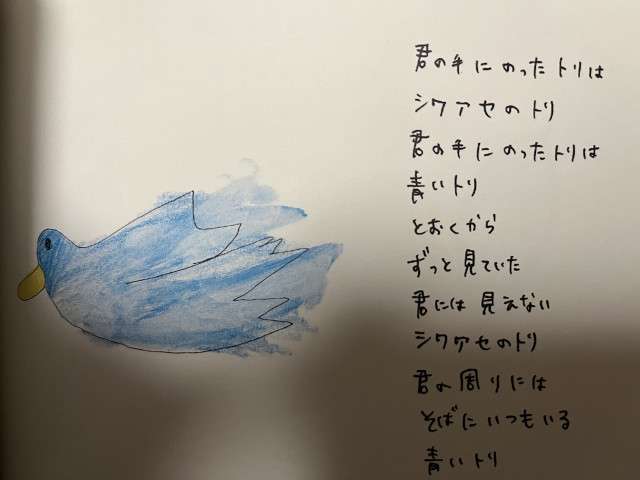 君の手にのったトリは
シワアセのトリ
君の手にのったトリは
青いトリ
とおくから
ずっと見ていた
君には見えない
シワアセのトリ
君の周りには
そばにいつもいる
青いトリ